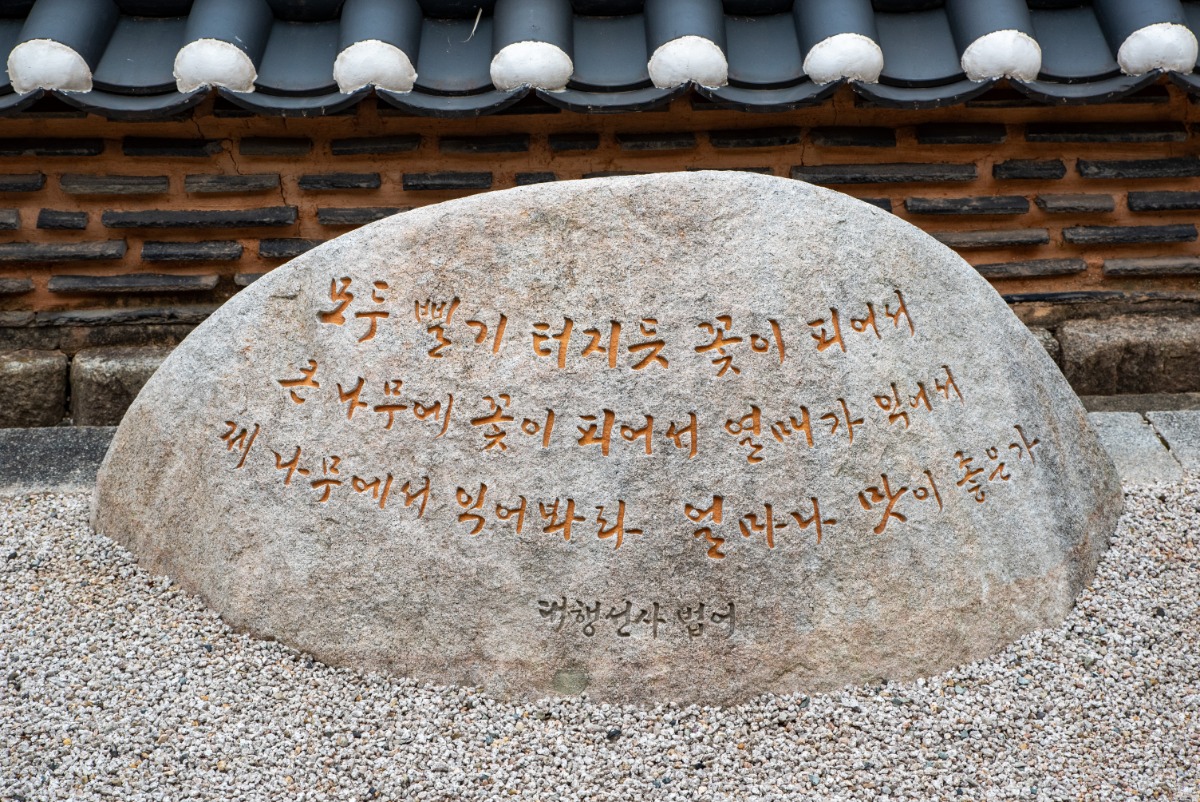 모두 삘기 터지듯 꽃이 피어서
큰 나무에 꽃이 피어서 열매가 익어서
제 나무에서 익어봐라 얼마나 맛이 좋은가
대행선사 법어